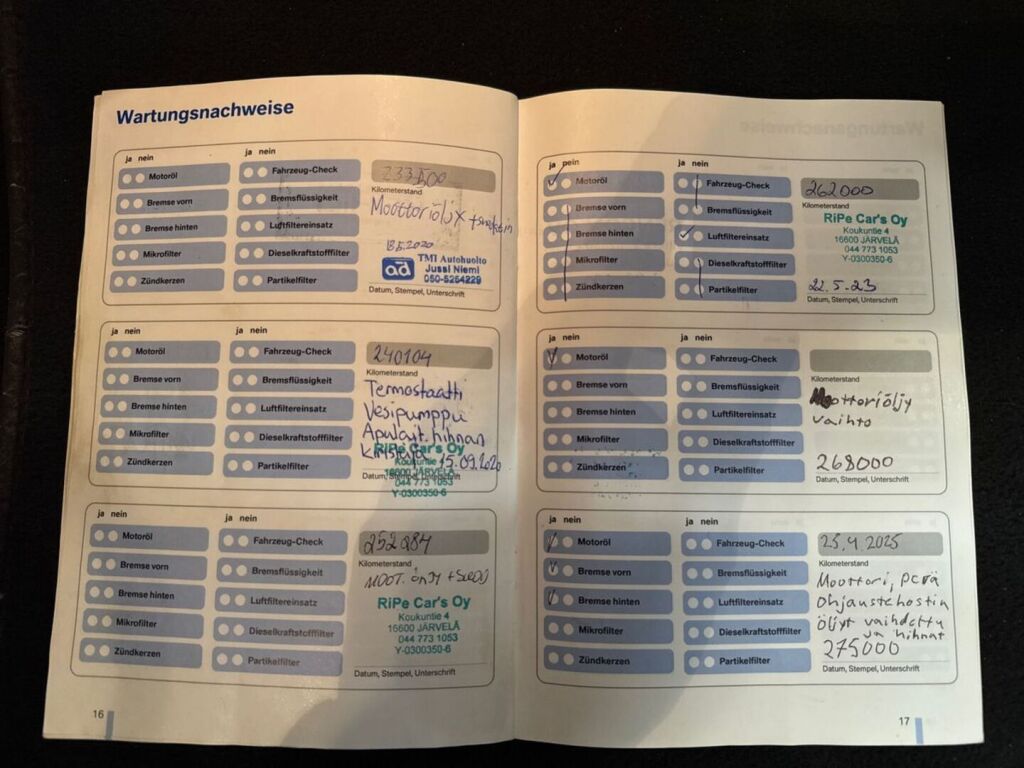 Wartungsnachweise
ja nein
ja nein
Motoröl
Bremse vorn
Bremse hinten
Mikrofilter
Zündkerzen
Fahrzeug-Check
Bremsflüssigkeit
Luftfiltereinsatz
Dieselkraftstofffilter
Partikelfilter
Kilometerstand
18.5.2020
ad
TMI Autohuolto
Jussi Niemi
050-5254229
Datum, Stempel, Unterschrift
ja nein
ja nein
Motoröl
Bremse vorn
Bremse hinten
Mikrofilter
Zündkerzen
Fahrzeug-Check
Bremsflüssigkeit
Luftfiltereinsatz
Dieselkraftstofffilter
Partikelfilter
240104
Kilometerstand
Termostaatti
Vesipumppu
Apulait.hihnan
Kiristäjä 15.09.2020
RiPe Car's Oy
Koukuntie 4
16600 JÄRVELÄ
044 773 1053
Y-0300350-6
Datum, Stempel, Unterschrift
ja nein
ja nein
Motoröl
Bremse vorn
Bremse hinten
Mikrofilter
Zündkerzen
Fahrzeug-Check
Bremsflüssigkeit
Luftfiltereinsatz
Dieselkraftstofffilter
Partikelfilter
252284
Kilometerstand
MOOT. ÖLJY
RiPe Car's Oy
Koukuntie 4
16600 JÄRVELÄ
044 773 1053
Y-0300350-6
Datum, Stempel, Unterschrift
16
ja nein
ja nein
Motoröl
Bremse vorn
Bremse hinten
Mikrofilter
Zündkerzen
Fahrzeug-Check
Bremsflüssigkeit
Luftfiltereinsatz
Dieselkraftstofffilter
Partikelfilter
262000
Kilometerstand
RiPe Car's Oy
Koukuntie 4
16600 JÄRVELÄ
044 773 1053
Y-0300350-6
22.5.23
Datum, Stempel, Unterschrift
ja nein
ja nein
Motoröl
Bremse vorn
Bremse hinten
Mikrofilter
Zündkerzen
Fahrzeug-Check
Bremsflüssigkeit
Luftfiltereinsatz
Dieselkraftstofffilter
Partikelfilter
Kilometerstand
Moottoriöljy
vaihto
268000
Datum, Stempel, Unterschrift
ja nein
ja nein
Motoröl
Bremse vorn
Bremse hinten
Mikrofilter
Zündkerzen
Fahrzeug-Check
Bremsflüssigkeit
Luftfiltereinsatz
Dieselkraftstofffilter
Partikelfilter
25.4.2025
Kilometerstand
Moottori, perä
Ohjaustehostin
öljyt vaihdettu
ja hihnat
275000
Datum, Stempel, Unterschrift
17